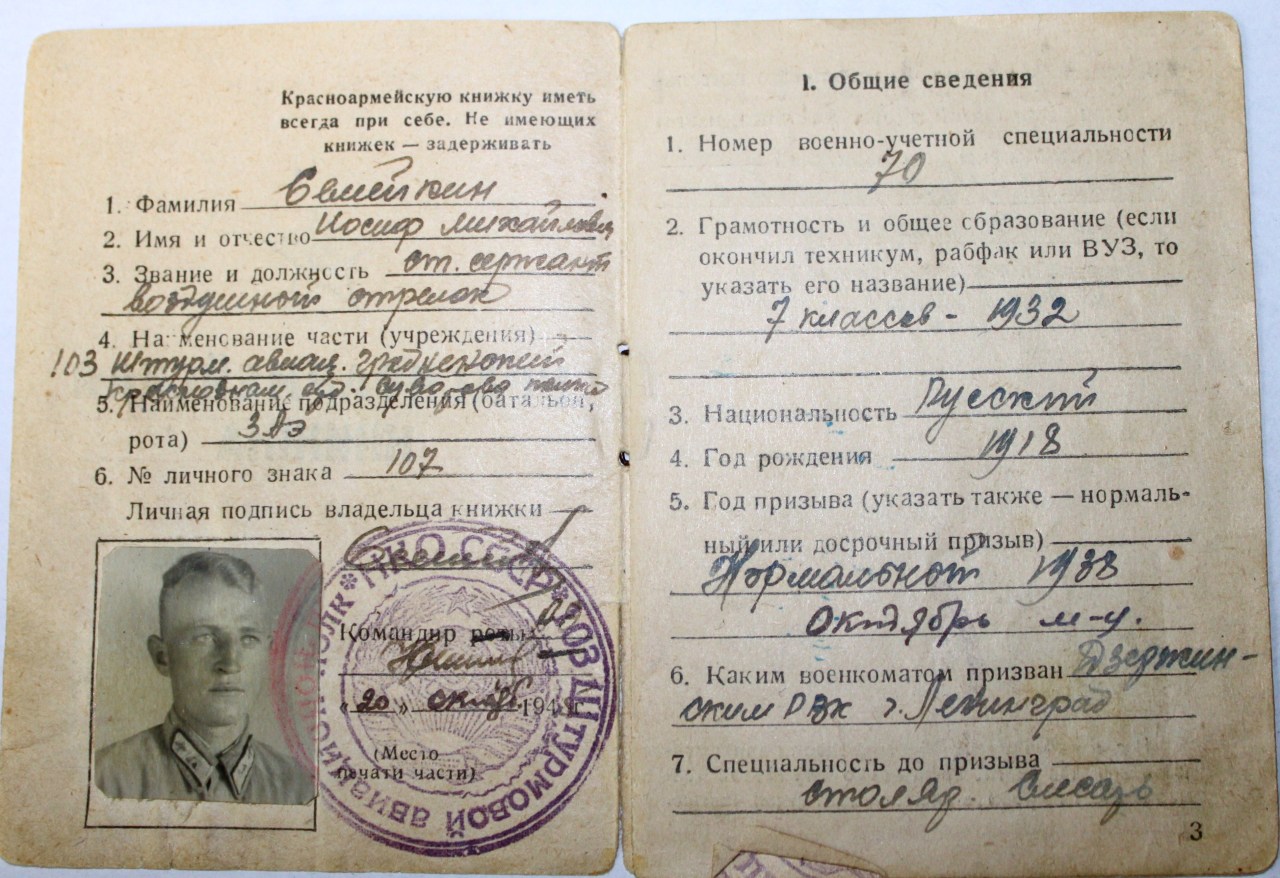 Красноармейскую книжку иметь
всегда при себе. Не имеющих
книжек — задерживать
1. Фамилия Семейкин
2. Имя и отчество Иосиф Михайлович
3. Звание и должность ст. сержант
воздушный стрелок
4. Наименование части (учреждения)
103 Штурм. авиац. гродненский
краснознам. орд. Суворова полк
5. Наименование подразделения (батальон,
рота) 3 АЭ
6. № личного знака 107
Личная подпись владельца книжки
Командир роты
«20» октяб 194 г.
(Место
печати части)
НКО СССР * 103 ШТУРМОВОЙ АВИАЦИОН ПОЛК *
I. Общие сведения
1. Номер военно-учетной специальности
70
2. Грамотность и общее образование (если
окончил техникум, рабфак или ВУЗ, то
указать его название)
7 классов - 1932
3. Национальность Русский
4. Год рождения 1918
5. Год призыва (указать также — нормаль-
ный или досрочный призыв)
Нормальной 1938
октябрь м-ц.
6. Каким военкоматом призван Дзержин-
ским РВК г. Ленинград
7. Специальность до призыва
столяр. слесарь
3